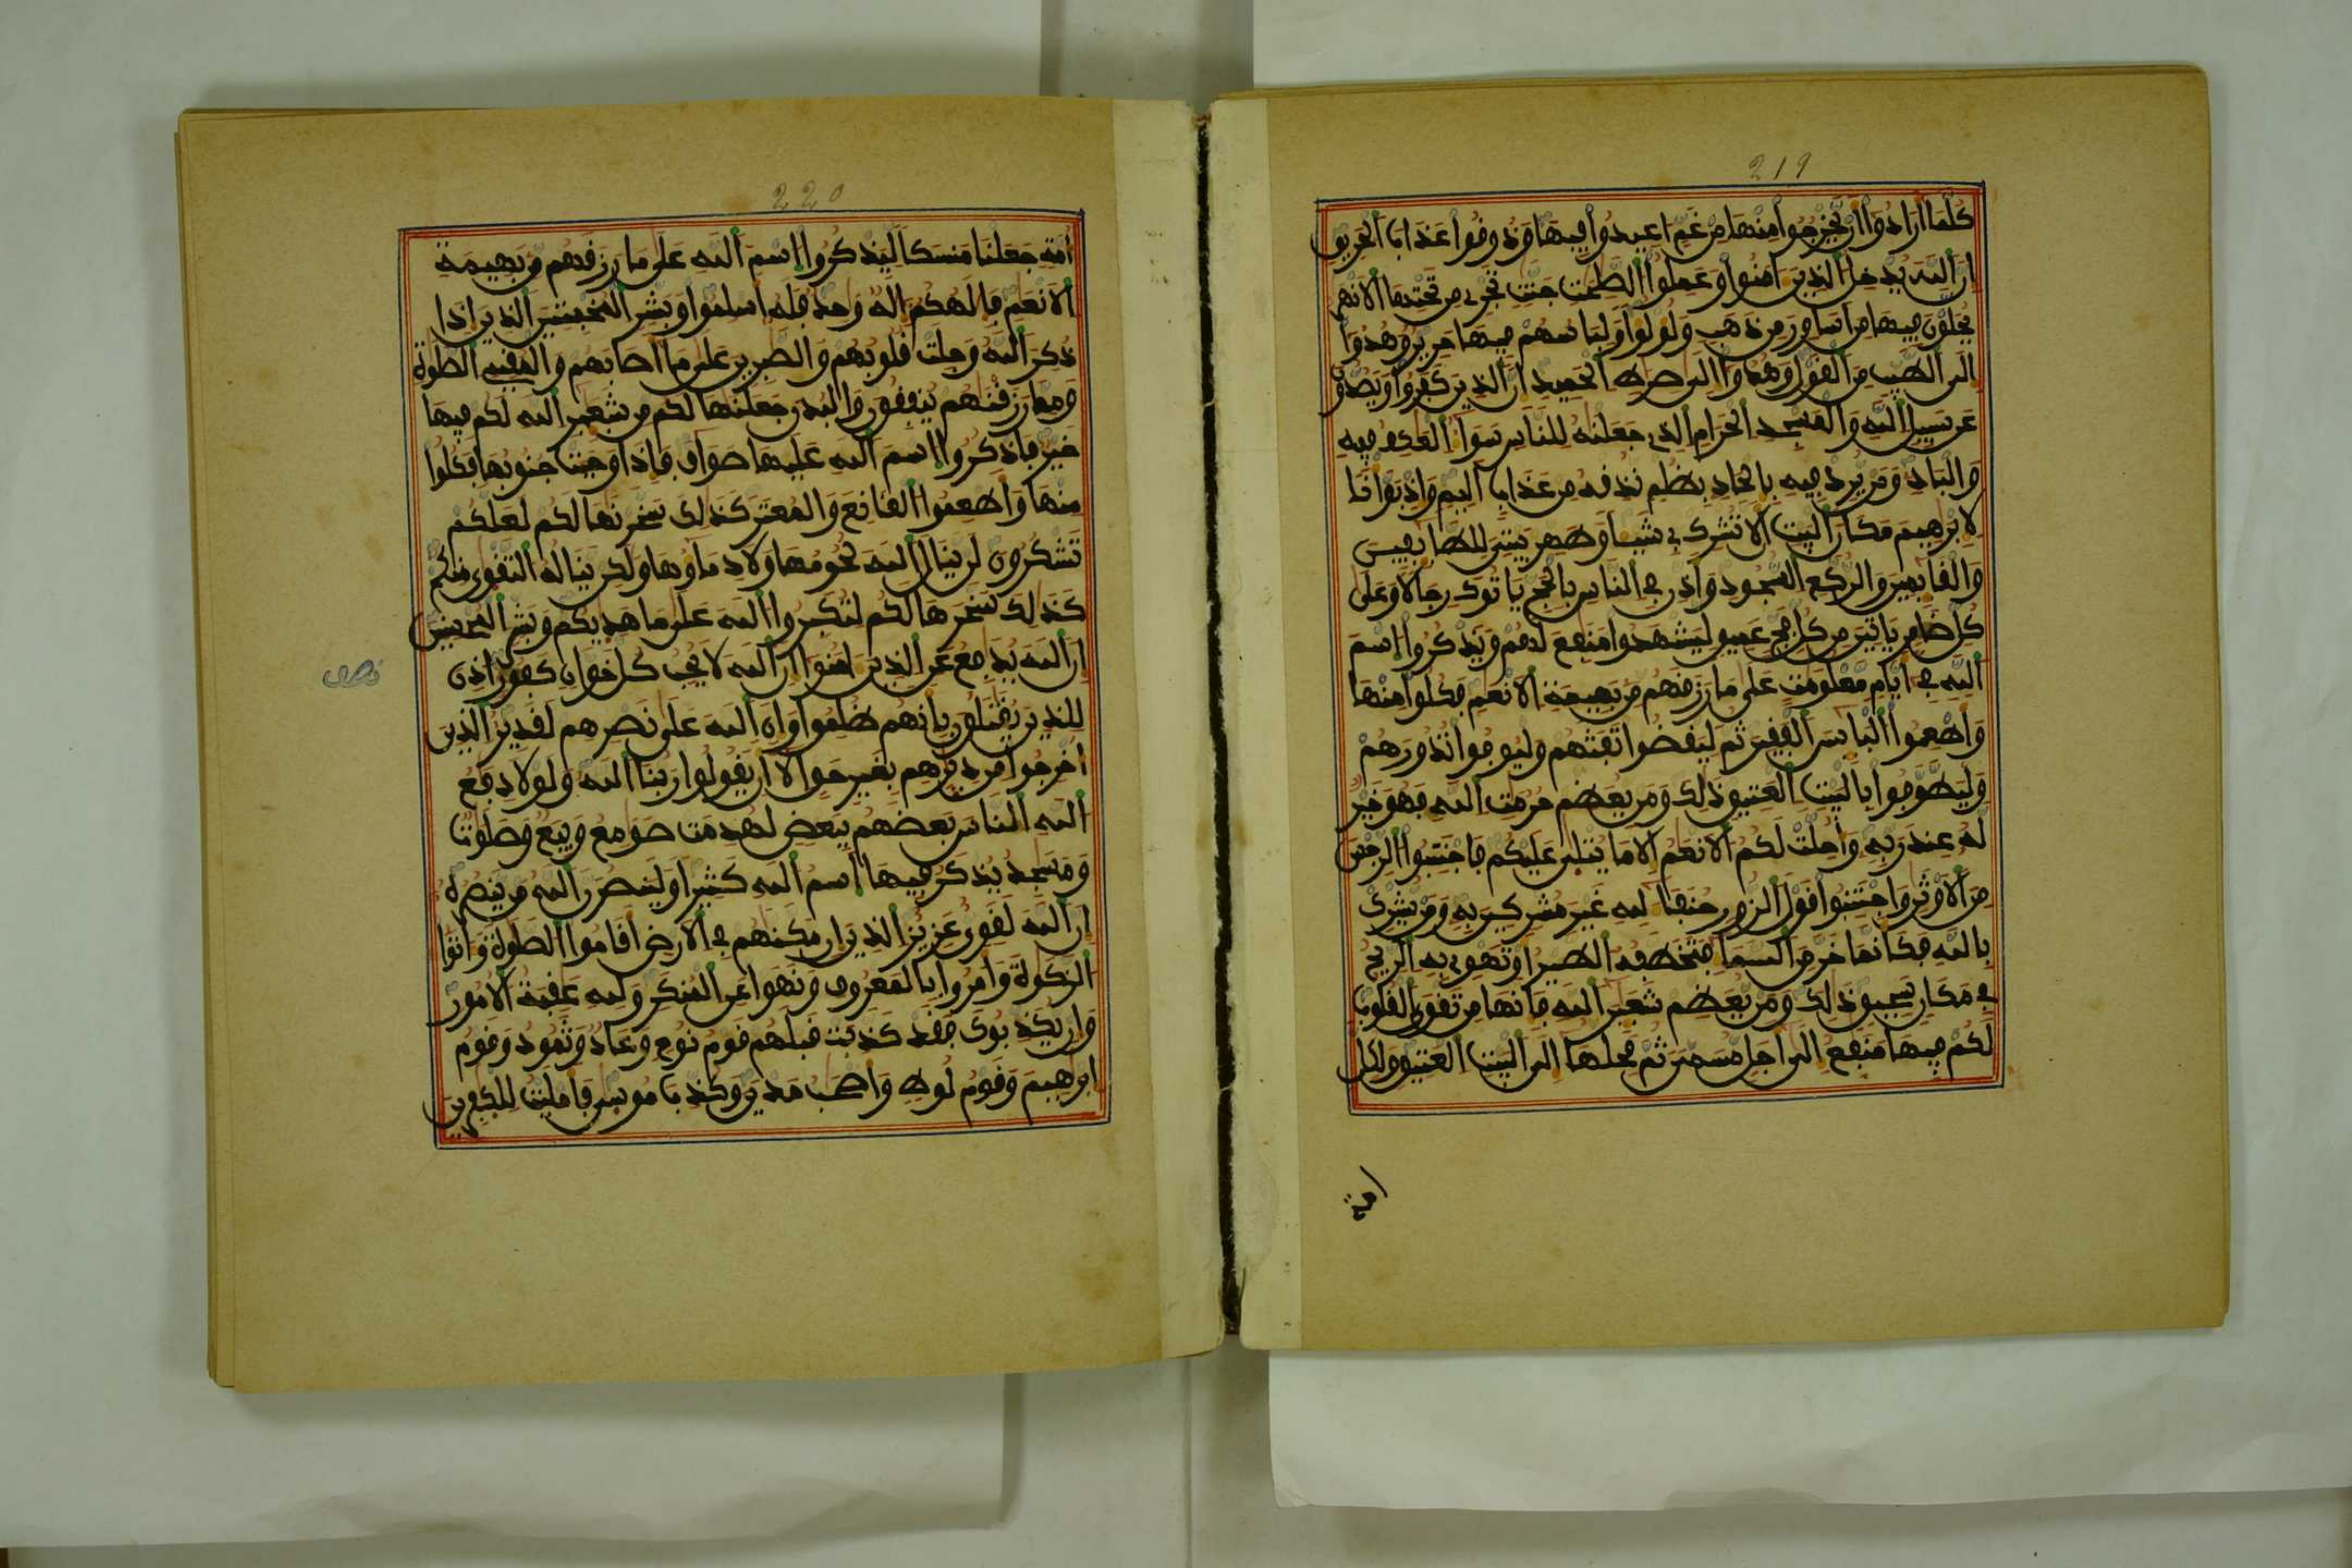 219
كلما أرادوا أن يخرجوا منها من غم اعيدوا فيها وذوقوا عذاب الحريق
ان الله يدخل الذين امنوا وعملوا الصلحت جنت تجري من تحتها الانهر
يحلون فيها من اساور من ذهب ولؤلؤا ولباسهم فيها حرير وهدوا
الى الطيب من القول وهدوا الى صرط الحميد ان الذين كفروا ويصدون
عن سبيل الله والمسجد الحرام الذي جعلنه للناس سواء العكف فيه
والباد ومن يرد فيه بالحاد بظلم نذقه من عذاب اليم واذ بوأنا
لابرهيم مكان البيت ان لا تشرك بي شيئا وطهر بيتي للطايفين
والقايمين والركع السجود واذن في الناس بالحج ياتوك رجالا وعلى
كل ضامر ياتين من كل فج عميق ليشهدوا منفع لهم ويذكروا اسم
الله في ايام معلومت على ما رزقهم من بهيمة الانعم فكلوا منها
واطعموا البايس الفقير ثم ليقضوا تفثهم وليوفوا نذورهم
وليطوفوا بالبيت العتيق ذلك ومن يعظم حرمت الله فهو خير
له عند ربه وأحلت لكم الانعم الا ما يتلى عليكم فاجتنبوا الرجس
من الاوثن واجتنبوا قول الزور حنفا لله غير مشركين به ومن يشرك
بالله فكانما خر من السما فتخطفه الطير او تهوي به الريح
في مكان سحيق ذلك ومن يعظم شعير الله فانها من تقوى القلوب
لكم فيها منفع الى اجل مسمى ثم محلها الى البيت العتيق ولكل
امة
220
أمة جعلنا منسكا ليذكروا اسم الله على ما رزقهم من بهيمة
الانعم فالهكم اله وحد فله اسلموا وبشر المخبتين الذين اذا
ذكر الله وجلت قلوبهم والصبرين على ما اصابهم والمقيمي الصلوة
ومما رزقنهم ينفقون والبدن جعلنها لكم من شعير الله لكم فيها
خير فاذكروا اسم الله عليها صواف فاذا وجبت جنوبها فكلوا
منها واطعموا القانع والمعتر كذلك سخرنها لكم لعلكم
تشكرون لن ينال الله لحومها ولا دماؤها ولكن يناله التقوى منكم
كذلك سخرها لكم لتكبروا الله على ما هديكم وبشر المحسنين
ان الله يدفع عن الذين امنوا ان الله لا يحب كل خوان كفور اذن
نصف
للذين يقتلون بانهم ظلموا وان الله على نصرهم لقدير الذين
أخرجوا من ديرهم بغير حق الا ان يقولوا ربنا الله ولولا دفع
الله الناس بعضهم ببعض لهدمت صومع وبيع وصلوت
ومسجد يذكر فيها اسم الله كثيرا ولينصرن الله من ينصره
ان الله لقوي عزيز الذين ان مكنهم في الارض اقاموا الصلوة واتوا
الزكوة وامروا بالمعروف ونهوا عن المنكر ولله عقبة الامور
وان يكذبوك فقد كذبت قبلهم قوم نوح وعاد وثمود وقوم
ابرهيم وقوم لوط واصحب مدين وكذب موسى فامليت للكفرين